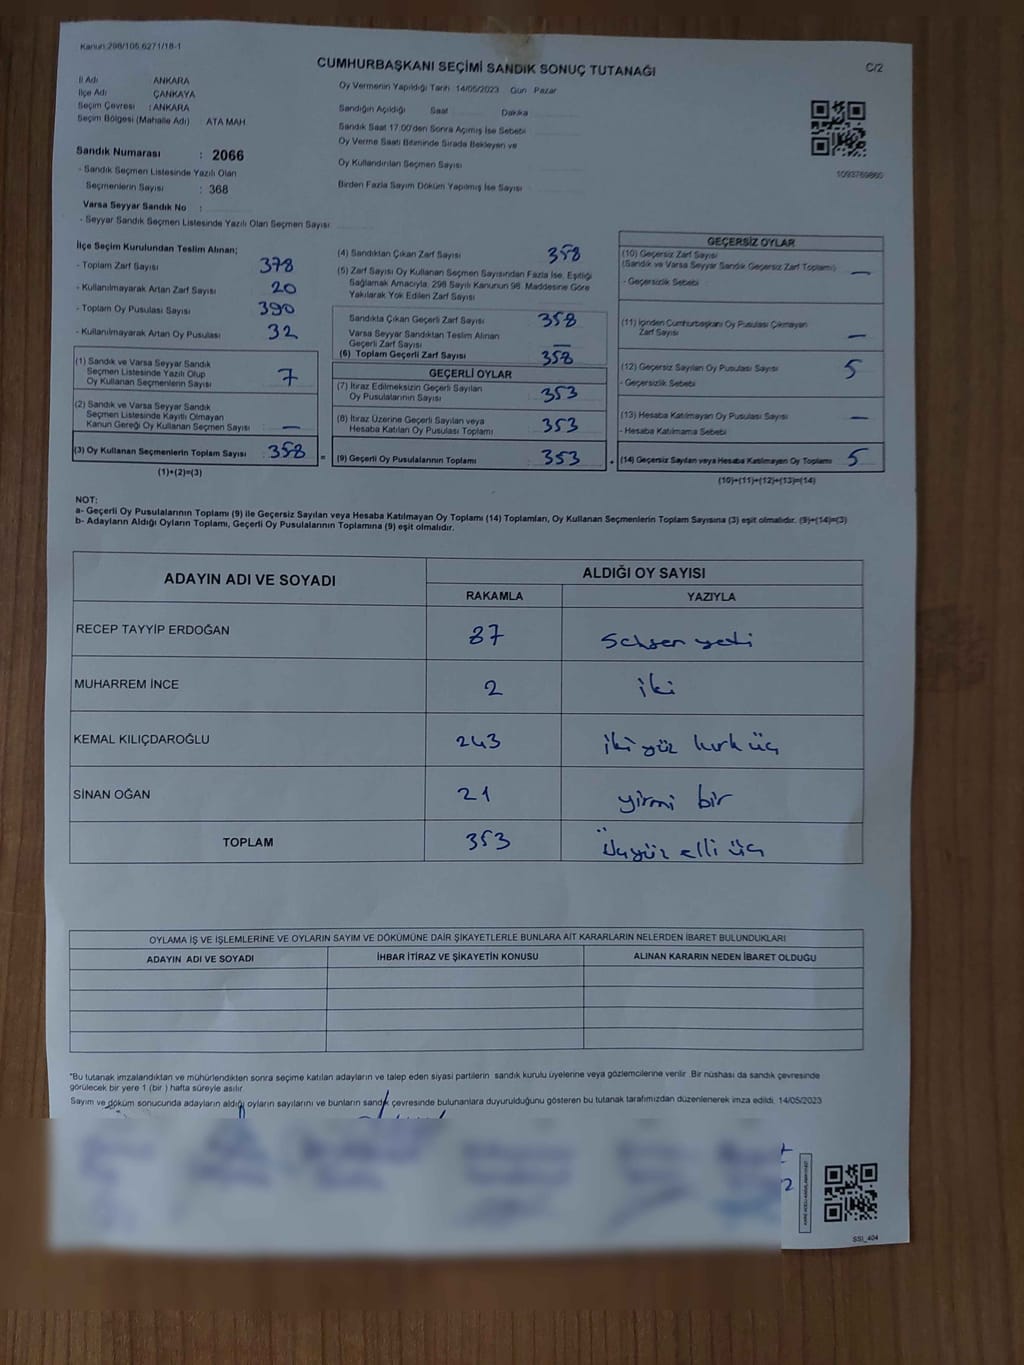 Kanun:298/105,6271/18-1
CUMHURBAŞKANI SEÇİMİ SANDIK SONUÇ TUTANAĞI
C/2
İl Adı ANKARA
İlçe Adı ÇANKAYA
Seçim Çevresi : ANKARA
Seçim Bölgesi (Mahalle Adı) : ATA MAH.
Oy Vermenin Yapıldığı Tarih 14/05/2023 Gün Pazar
Sandığın Açıldığı Saat Dakika
Sandık Saat 17.00'den Sonra Açılmış İse Sebebi
Oy Verme Saati Bitiminde Sırada Bekleyen ve
Oy Kullandırılan Seçmen Sayısı
Birden Fazla Sayım Döküm Yapılmış İse Sayısı
1093769860
Sandık Numarası : 2066
- Sandık Seçmen Listesinde Yazılı Olan
Seçmenlerin Sayısı : 368
Varsa Seyyar Sandık No :
- Seyyar Sandık Seçmen Listesinde Yazılı Olan Seçmen Sayısı
İlçe Seçim Kurulundan Teslim Alınan;
- Toplam Zarf Sayısı 378
- Kullanılmayarak Artan Zarf Sayısı 20
- Toplam Oy Pusulası Sayısı 390
- Kullanılmayarak Artan Oy Pusulası 32
(1) Sandık ve Varsa Seyyar Sandık
Seçmen Listesinde Yazılı Olup
Oy Kullanan Seçmenlerin Sayısı 7
(2) Sandık ve Varsa Seyyar Sandık
Seçmen Listesinde Kayıtlı Olmayan
Kanun Gereği Oy Kullanan Seçmen Sayısı —
(3) Oy Kullanan Seçmenlerin Toplam Sayısı : 358 =
(1)+(2)=(3)
(4) Sandıktan Çıkan Zarf Sayısı 358
(5) Zarf Sayısı Oy Kullanan Seçmen Sayısından Fazla İse, Eşitliği
Sağlamak Amacıyla, 298 Sayılı Kanunun 98. Maddesine Göre
Yakılarak Yok Edilen Zarf Sayısı
Sandıkta Çıkan Geçerli Zarf Sayısı 358
Varsa Seyyar Sandıktan Teslim Alınan
Geçerli Zarf Sayısı —
(6) Toplam Geçerli Zarf Sayısı 358
GEÇERLİ OYLAR
(7) İtiraz Edilmeksizin Geçerli Sayılan
Oy Pusulalarının Sayısı 353
(8) İtiraz Üzerine Geçerli Sayılan veya
Hesaba Katılan Oy Pusulası Toplamı 353
(9) Geçerli Oy Pusulalarının Toplamı 353 +
GEÇERSİZ OYLAR
(10) Geçersiz Zarf Sayısı
(Sandık ve Varsa Seyyar Sandık Geçersiz Zarf Toplamı) —
- Geçersizlik Sebebi
(11) İçinden Cumhurbaşkanı Oy Pusulası Çıkmayan
Zarf Sayısı —
(12) Geçersiz Sayılan Oy Pusulası Sayısı 5
- Geçersizlik Sebebi
(13) Hesaba Katılmayan Oy Pusulası Sayısı —
- Hesaba Katılmama Sebebi
(14) Geçersiz Sayılan veya Hesaba Katılmayan Oy Toplamı 5
(10)+(11)+(12)+(13)=(14)
NOT:
a- Geçerli Oy Pusulalarının Toplamı (9) ile Geçersiz Sayılan veya Hesaba Katılmayan Oy Toplamı (14) Toplamları, Oy Kullanan Seçmenlerin Toplam Sayısına (3) eşit olmalıdır. (9)+(14)=(3)
b- Adayların Aldığı Oyların Toplamı, Geçerli Oy Pusulalarının Toplamına (9) eşit olmalıdır.
ADAYIN ADI VE SOYADI ALDIĞI OY SAYISI
RAKAMLA YAZIYLA
RECEP TAYYİP ERDOĞAN 87 Seksen yedi
MUHARREM İNCE 2 iki
KEMAL KILIÇDAROĞLU 243 iki yüz kırk üç
SİNAN OĞAN 21 yirmi bir
TOPLAM 353 Üçyüz elli üç
OYLAMA İŞ VE İŞLEMLERİNE VE OYLARIN SAYIM VE DÖKÜMÜNE DAİR ŞİKAYETLERLE BUNLARA AİT KARARLARIN NELERDEN İBARET BULUNDUKLARI
ADAYIN ADI VE SOYADI İHBAR İTİRAZ VE ŞİKAYETİN KONUSU ALINAN KARARIN NEDEN İBARET OLDUĞU
*Bu tutanak imzalandıktan ve mühürlendikten sonra seçime katılan adayların ve talep eden siyasi partilerin sandık kurulu üyelerine veya gözlemcilerine verilir. Bir nüshası da sandık çevresinde
görülecek bir yere 1 (bir ) hafta süreyle asılır.
Sayım ve döküm sonucunda adayların aldığı oyların sayılarını ve bunların sandık çevresinde bulunanlara duyurulduğunu gösteren bu tutanak tarafımızdan düzenlenerek imza edildi. 14/05/2023
SSI_404